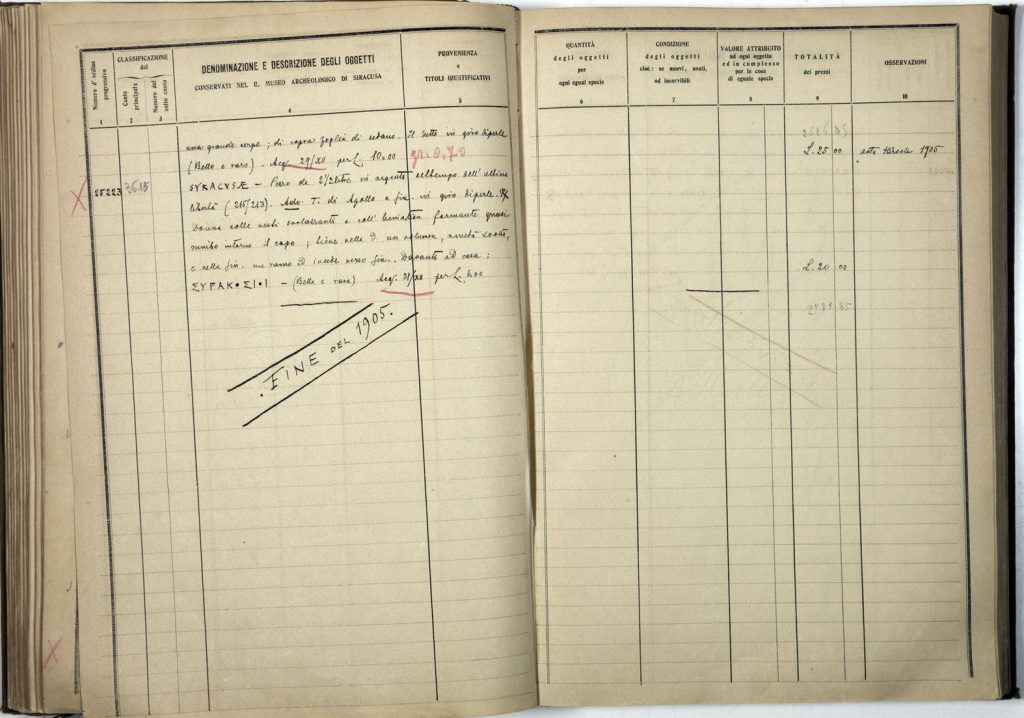 Numero d' ordine progressivo
CLASSIFICAZIONE del
Conto principale
Numero del sotto conto
DENOMINAZIONE E DESCRIZIONE DEGLI OGGETTI
CONSERVATI NEL R. MUSEO ARCHEOLOGICO DI SIRACUSA
PROVENIENZA
e
TITOLI GIUSTIFICATIVI
1 2 3 4 5
una grande serpe; di sopra foglia di sedano. Il tutto in giro di perle
(Bello e raro). Acq. 29/XII per L. 10.00 gr. 0,70
25223 3615 SYRACVSÆ – Pezzo da 2½ litre in argento del tempo dell'ultima
libertà (215/213). Ado T. di Apollo a sin. in giro di perle. R
Donna colle vesti svolazzanti e coll' himation formante quasi
nimbo intorno il capo; tiene nella d. un volumen, a metà svolto,
e nella sin. un ramo
verso sin. Davanti ad essa:
ΣΥΡΑΚ•ΣΙ•Ι – (Bello e raro) Acq. 31/XII per L. 6.00
. FINE DEL 1905.
QUANTITÀ
degli oggetti
per
ogni egual specie
CONDIZIONE
degli oggetti
cioè: se nuovi, usati,
od inservibili
VALORE ATTRIBUITO
ad ogni oggetto
ed in complesso
per le cose
di eguale specie
TOTALITÀ
dei prezzi
OSSERVAZIONI
6 7 8 9 10
2686 85
L. 25 00 asta 1905
L. 20 00
2731 85